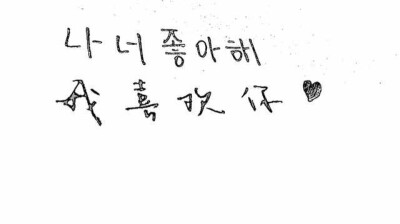 나 너 좋아해
我喜欢你♥